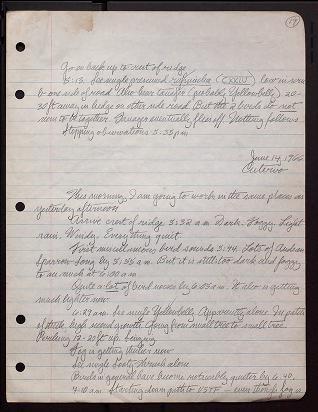 17
Go on back up to crest of ridge.
5:13. See single presumed rufivindex (CXXIV) low in scrub
b one side of road. Also hear (probably Yellowbelly) 20-
30 ft away, in hedge on other side road. But the 2 birds do not
seem to be together. Bruagers eventually flies off. Nothing follows
Stopping observations 5:35 p.m.
June 14, 1966
Cuterivo
This morning, I am going to work in the same place as
yesterday afternoon.
Arrive crest of ridge 5:32 a.m. Dark. Foggy. Light
rain. Windy. Everything quiet.
First miscellaneous bird sounds 5:44. Lots of Andean
Sparrow song by 5:55 a.m. But it is still too dark and foggy
to see much at 6:00 a.m.
Quite a lot of bird noises by 6:03 a.m. It also is getting
much lighter now.
6:29 a.m. See single Yellowbelly. Apparently alone. In patch
of thick, high second growth. Going from small tree to small tree.
Perching 12-20 ft up.
Fog is getting thicker now
See single Sooty Thrush alone
Birds in general have become noticeably quieter by 6:40.
7:10 a.m. Starting down path to VSTF - even though fog a